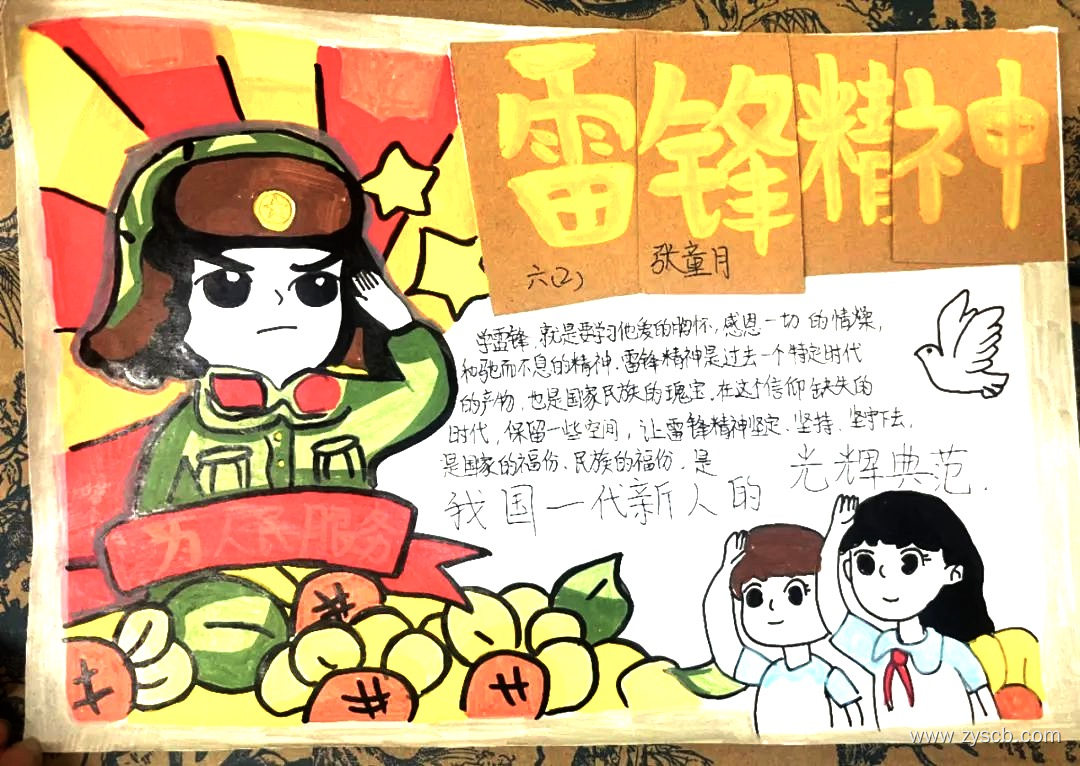 雷锋精神
六(2) 张童月
学雷锋,就是要学习他爱的胸怀,感恩一切的情燥,
和驰而不息的精神.雷锋精神是过去一个特定时代
的产物,也是国家民族的瑰宝.在这个信仰缺失的
时代,保留一些空间,让雷锋精神坚定、坚持、坚守下去,
是国家的福份、民族的福份.是
我国一代新人的光辉典范.
为人民服务
www.zyscb.com